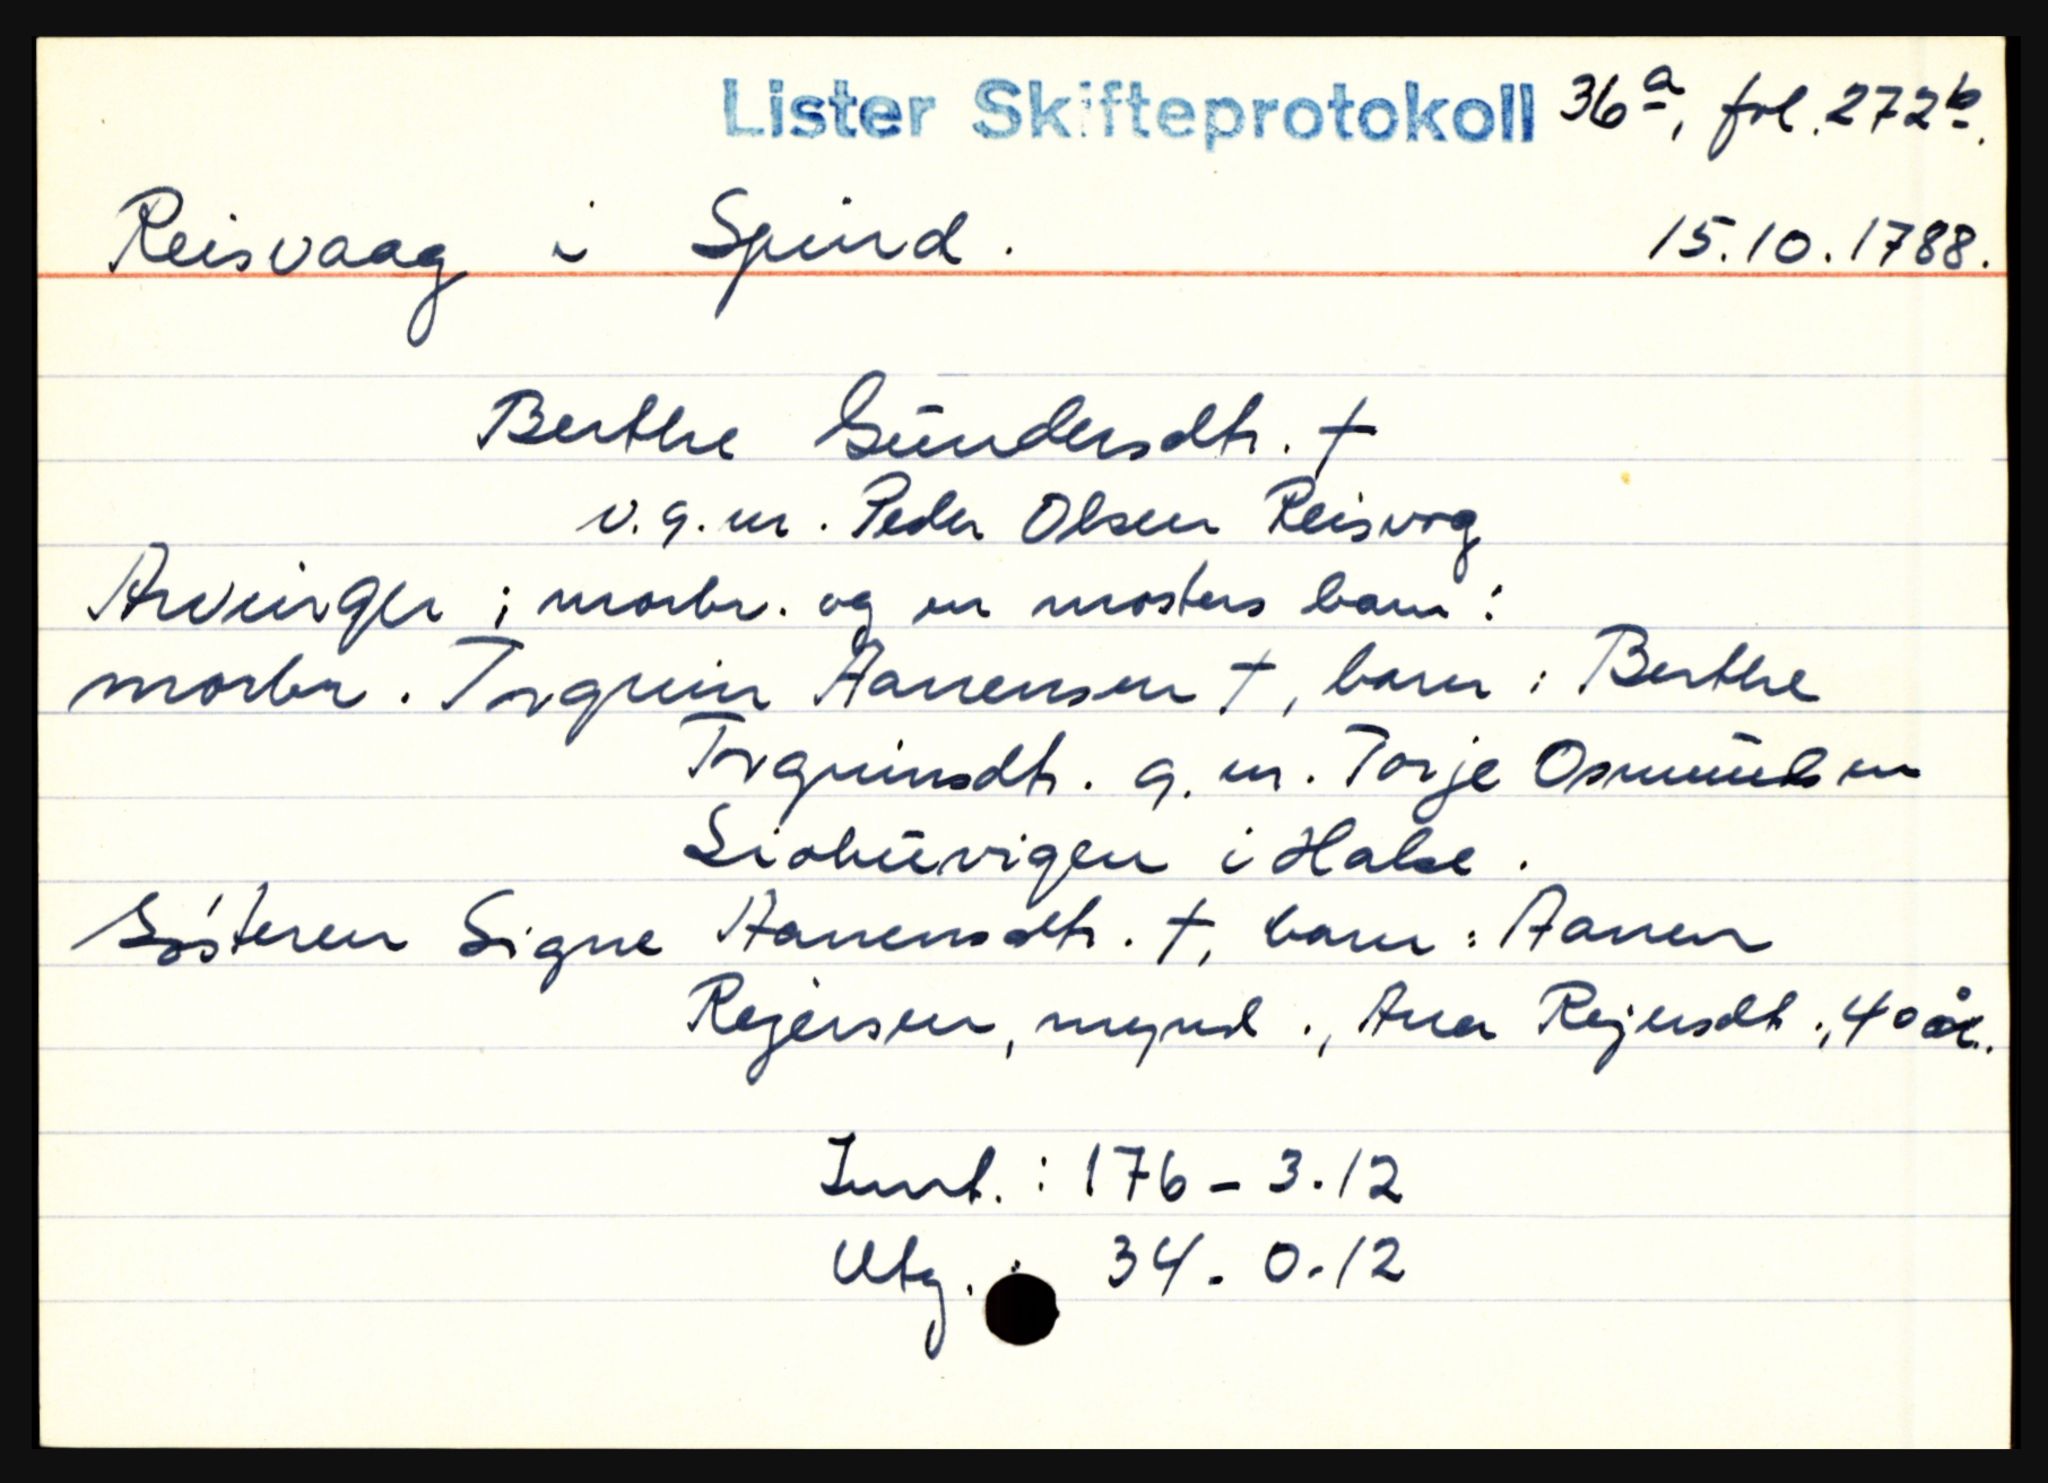 Lister Skifteprotokoll 36a, fol. 272b.
Reisvaag i Spind. 15.10.1788.
Berthe Gündersdtr. †
v. g. m. Peder Olsen Reisvog
Arvinger ; morbr. og en mosters barn :
morbr. Torgrim Aanensen †, barn : Berthe
Torgrimsdtr. g. m. Torje Osmünsen
Siobüvigen i Halse.
Sösteren Signe Aanensdtr. †, barn : Aanen
Rejersen, mynd., Ana Rejersdt., 40 år.
Innt. : 176 - 3.12
Utg. : 34 - 0.12